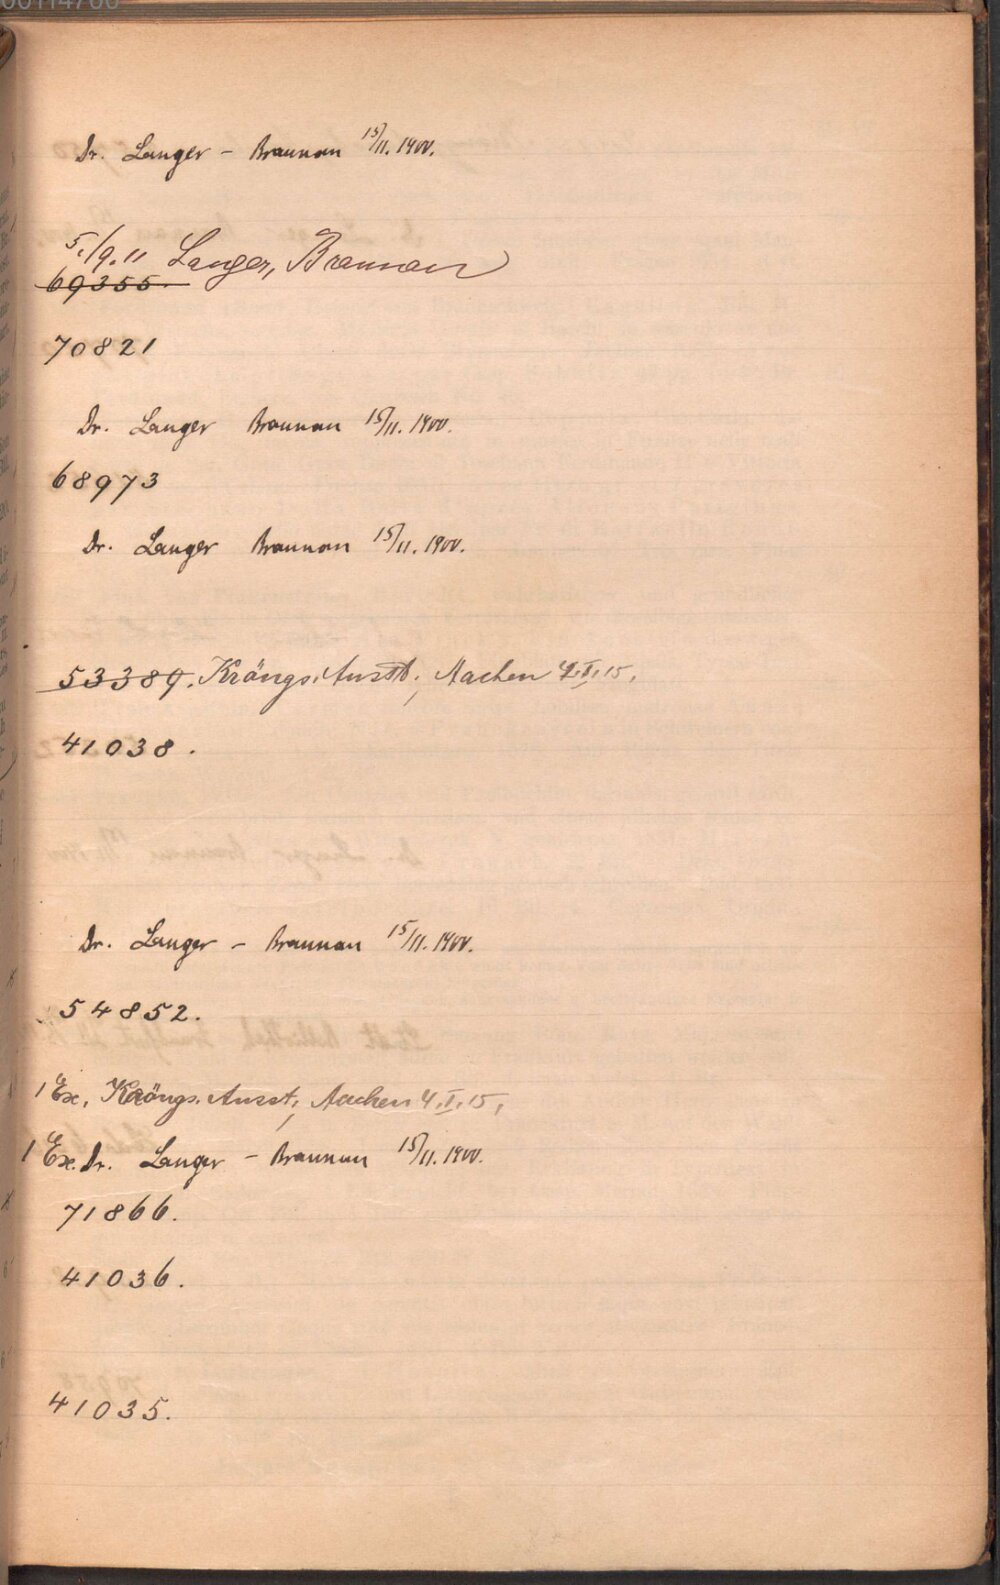 00114700
Dr. Langer - Braunau 15/11. 1900.
5./9.11 Langer, Braunau
69355.
70821
Dr. Langer Braunau 15/11. 1900.
68973
Dr. Langer Braunau 15/11. 1900.
53389. Kröngs. Ausst., Aachen 4.I.15.
41038.
Dr. Langer - Braunau 15/11. 1900.
54852.
1 Ex. Kröngs. Ausst., Aachen 4.I.15.
1 Ex. Dr. Langer - Braunau 15/11. 1900.
71866.
41036.
41035.